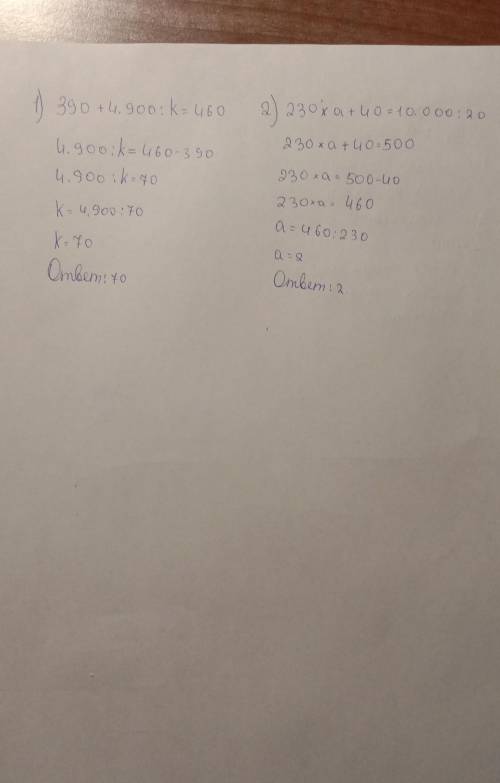 1) 390 + 4.900 : k = 460
4.900 : k = 460 - 390
4.900 : k = 70
k = 4.900 : 70
k = 70
Ответ: 70
2) 230 x a + 40 = 10.000 : 20
230 x a + 40 = 500
230 x a = 500 - 40
230 x a = 460
a = 460 : 230
a = 2
Ответ: 2